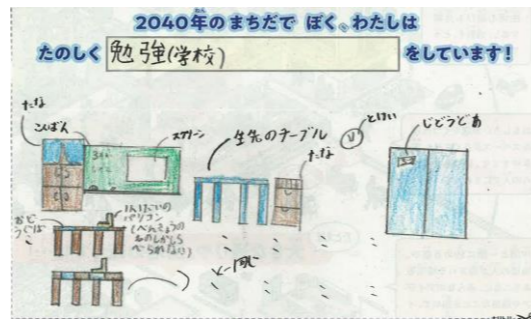 2040年のまちだで ぼく、わたしは
たのしく 勉強(学校) をしています!
たな
こくばん
スクリーン
生先のテーブル
たな
とけい
じどうどあ
おどうぐばこ
1人1けいの
パソコン
(べんきょうの
ものしかしら
べられない)
同じ